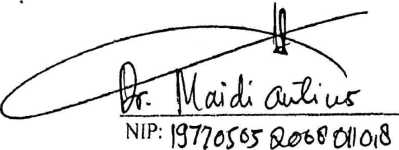 Dr. Maidi Antius
NIP: 19770505 2008 011018